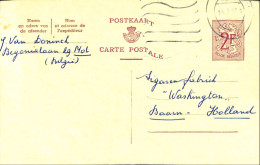 Naam
en adres van
de afzender
Nom
et adresse de
l'expéditeur
POSTKAART
CARTE POSTALE
2F
J Van Doninck
Begonialaan 29 Mol
(België)
Sigaren fabriek
"Washington"
Baarn - Holland